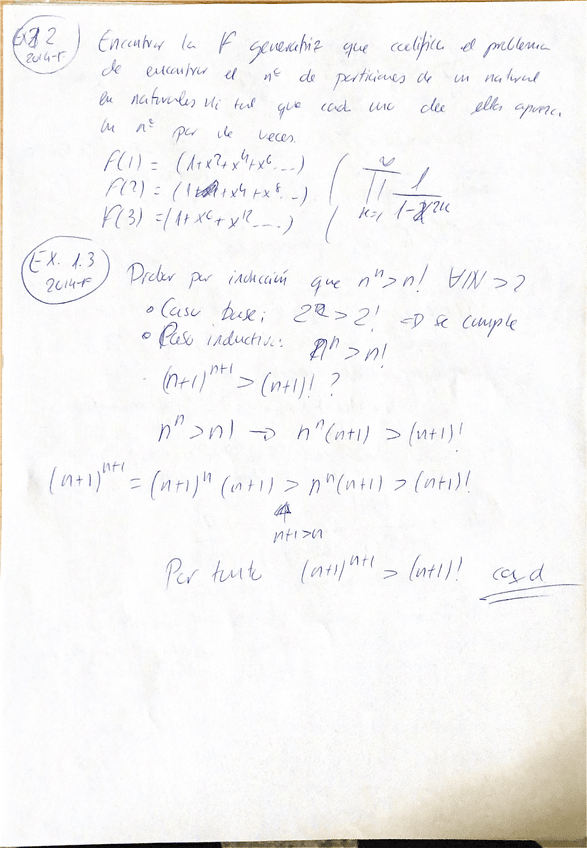 Ex 2
2014-F
Encontrar la F generatriz que codifica el problema
de encontrar el nº de particiones de un natural
en naturales ni tal que cada uno de ellos aparezca
un nº par de veces.
F(1) = (1+x²+x⁴+x⁶....)
F(2) = (1+x⁴+x⁸...)
F(3) = (1+x⁶+x¹²....)
∞ ∏ k=1 1/(1-x^2k)
EX. 1.3
2014-F
Probar por inducción que nⁿ > n! ∀ℕ > 2
• Caso base: 2² > 2! ⇒ se cumple
• Paso inductivo: nⁿ > n!
(n+1)ⁿ⁺¹ > (n+1)! ?
nⁿ > n! → nⁿ(n+1) > (n+1)!
(n+1)ⁿ⁺¹ = (n+1)ⁿ (n+1) > nⁿ(n+1) > (n+1)!
↑
n+1>n
Por tanto (n+1)ⁿ⁺¹ > (n+1)! csqd